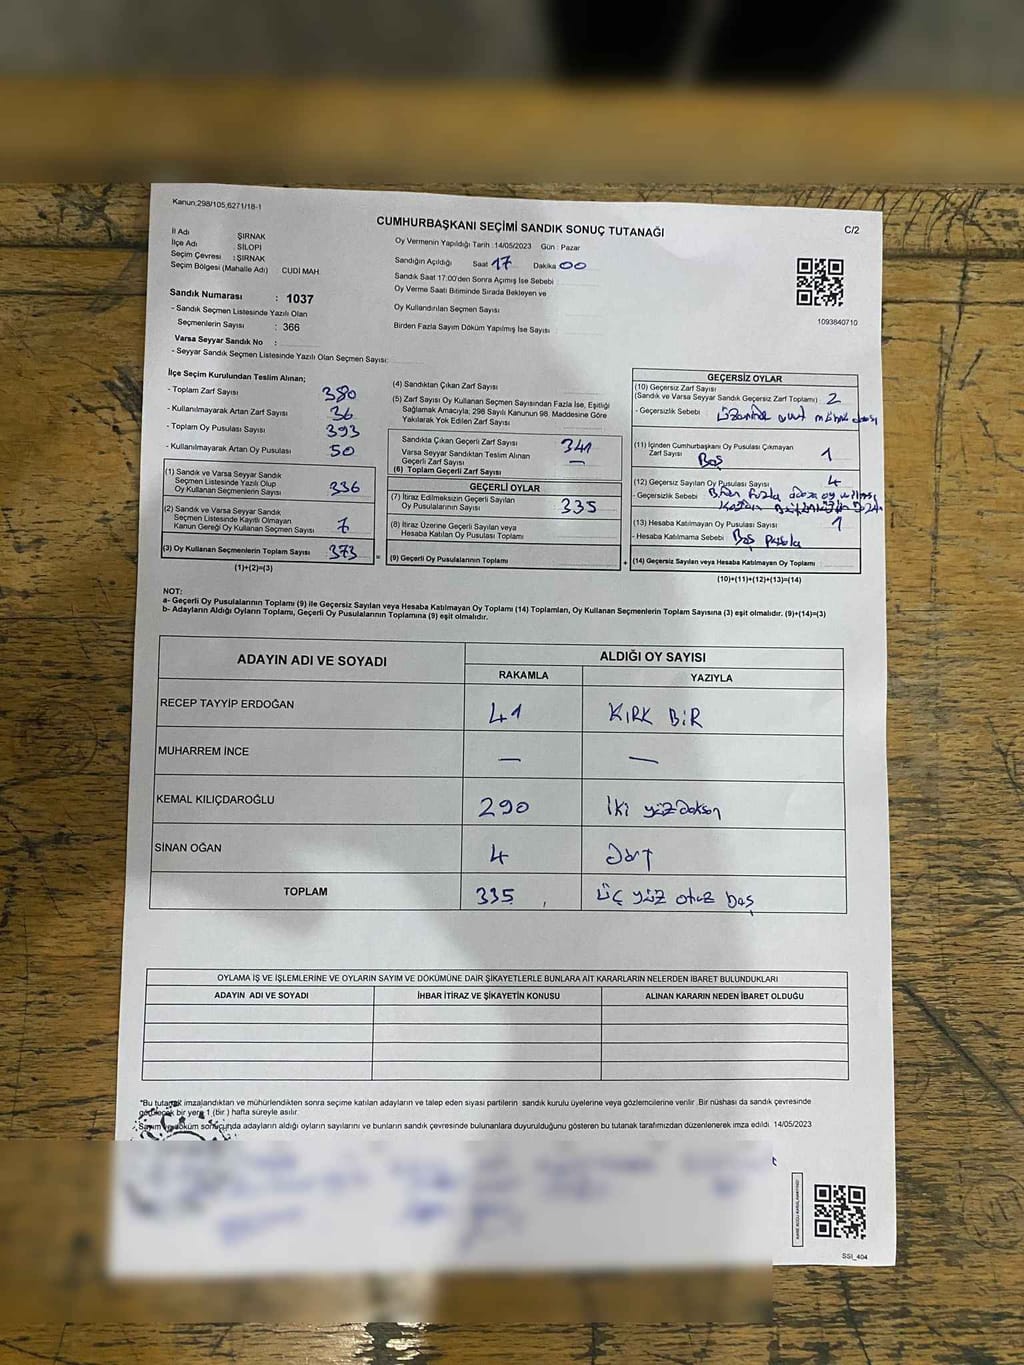 Kanun;298/105,6271/18-1
CUMHURBAŞKANI SEÇİMİ SANDIK SONUÇ TUTANAĞI
C/2
İl Adı : ŞIRNAK
İlçe Adı : SİLOPİ
Seçim Çevresi : ŞIRNAK
Seçim Bölgesi (Mahalle Adı) CUDİ MAH.
Sandık Numarası : 1037
- Sandık Seçmen Listesinde Yazılı Olan
Seçmenlerin Sayısı : 366
Varsa Seyyar Sandık No :
- Seyyar Sandık Seçmen Listesinde Yazılı Olan Seçmen Sayısı:
Oy Vermenin Yapıldığı Tarih :14/05/2023 Gün : Pazar
Sandığın Açıldığı Saat 17 Dakika 00
Sandık Saat 17:00'den Sonra Açımış İse Sebebi
Oy Verme Saati Bitiminde Sırada Bekleyen ve
Oy Kullandırılan Seçmen Sayısı
Birden Fazla Sayım Döküm Yapılmış İse Sayısı
1093840710
İlçe Seçim Kurulundan Teslim Alınan;
- Toplam Zarf Sayısı 380
- Kullanılmayarak Artan Zarf Sayısı 36
- Toplam Oy Pusulası Sayısı 393
- Kullanılmayarak Artan Oy Pusulası 50
(1) Sandık ve Varsa Seyyar Sandık
Seçmen Listesinde Yazılı Olup
Oy Kullanan Seçmenlerin Sayısı 336
(2) Sandık ve Varsa Seyyar Sandık
Seçmen Listesinde Kayıtlı Olmayan
Kanun Gereği Oy Kullanan Seçmen Sayısı 7
(3) Oy Kullanan Seçmenlerin Toplam Sayısı 373
(1)+(2)=(3)
(4) Sandıktan Çıkan Zarf Sayısı
(5) Zarf Sayısı Oy Kullanan Seçmen Sayısından Fazla İse, Eşitliği
Sağlamak Amacıyla, 298 Sayılı Kanunun 98. Maddesine Göre
Yakılarak Yok Edilen Zarf Sayısı
Sandıkta Çıkan Geçerli Zarf Sayısı 341
Varsa Seyyar Sandıktan Teslim Alınan
Geçerli Zarf Sayısı —
(6) Toplam Geçerli Zarf Sayısı
GEÇERLİ OYLAR
(7) İtiraz Edilmeksizin Geçerli Sayılan
Oy Pusulalarının Sayısı 335
(8) İtiraz Üzerine Geçerli Sayılan veya
Hesaba Katılan Oy Pusulası Toplamı
= (9) Geçerli Oy Pusulalarının Toplamı +
GEÇERSİZ OYLAR
(10) Geçersiz Zarf Sayısı
(Sandık ve Varsa Seyyar Sandık Geçersiz Zarf Toplamı) 2
- Geçersizlik Sebebi Üzerinde
(11) İçinden Cumhurbaşkanı Oy Pusulası Çıkmayan
Zarf Sayısı Boş 1
(12) Geçersiz Sayılan Oy Pusulası Sayısı 4
- Geçersizlik Sebebi
(13) Hesaba Katılmayan Oy Pusulası Sayısı 1
- Hesaba Katılmama Sebebi Boş Pusula
(14) Geçersiz Sayılan veya Hesaba Katılmayan Oy Toplamı
(10)+(11)+(12)+(13)=(14)
NOT:
a- Geçerli Oy Pusulalarının Toplamı (9) ile Geçersiz Sayılan veya Hesaba Katılmayan Oy Toplamı (14) Toplamları, Oy Kullanan Seçmenlerin Toplam Sayısına (3) eşit olmalıdır. (9)+(14)=(3)
b- Adayların Aldığı Oyların Toplamı, Geçerli Oy Pusulalarının Toplamına (9) eşit olmalıdır.
ADAYIN ADI VE SOYADI
ALDIĞI OY SAYISI
RAKAMLA YAZIYLA
RECEP TAYYİP ERDOĞAN 41 KIRK BİR
MUHARREM İNCE — —
KEMAL KILIÇDAROĞLU 290 İki yüz doksan
SİNAN OĞAN 4 Dört
TOPLAM 335 Üç yüz otuz beş
OYLAMA İŞ VE İŞLEMLERİNE VE OYLARIN SAYIM VE DÖKÜMÜNE DAİR ŞİKAYETLERLE BUNLARA AİT KARARLARIN NELERDEN İBARET BULUNDUKLARI
ADAYIN ADI VE SOYADI İHBAR İTİRAZ VE ŞİKAYETİN KONUSU ALINAN KARARIN NEDEN İBARET OLDUĞU
*Bu tutanak imzalandıktan ve mühürlendikten sonra seçime katılan adayların ve talep eden siyasi partilerin sandık kurulu üyelerine veya gözlemcilerine verilir .Bir nüshası da sandık çevresinde
görülecek bir yere 1 (bir ) hafta süreyle asılır.
Sayım ve döküm sonucunda adayların aldığı oyların sayılarını ve bunların sandık çevresinde bulunanlara duyurulduğunu gösteren bu tutanak tarafımızdan düzenlenerek imza edildi. 14/05/2023
SSİ_404